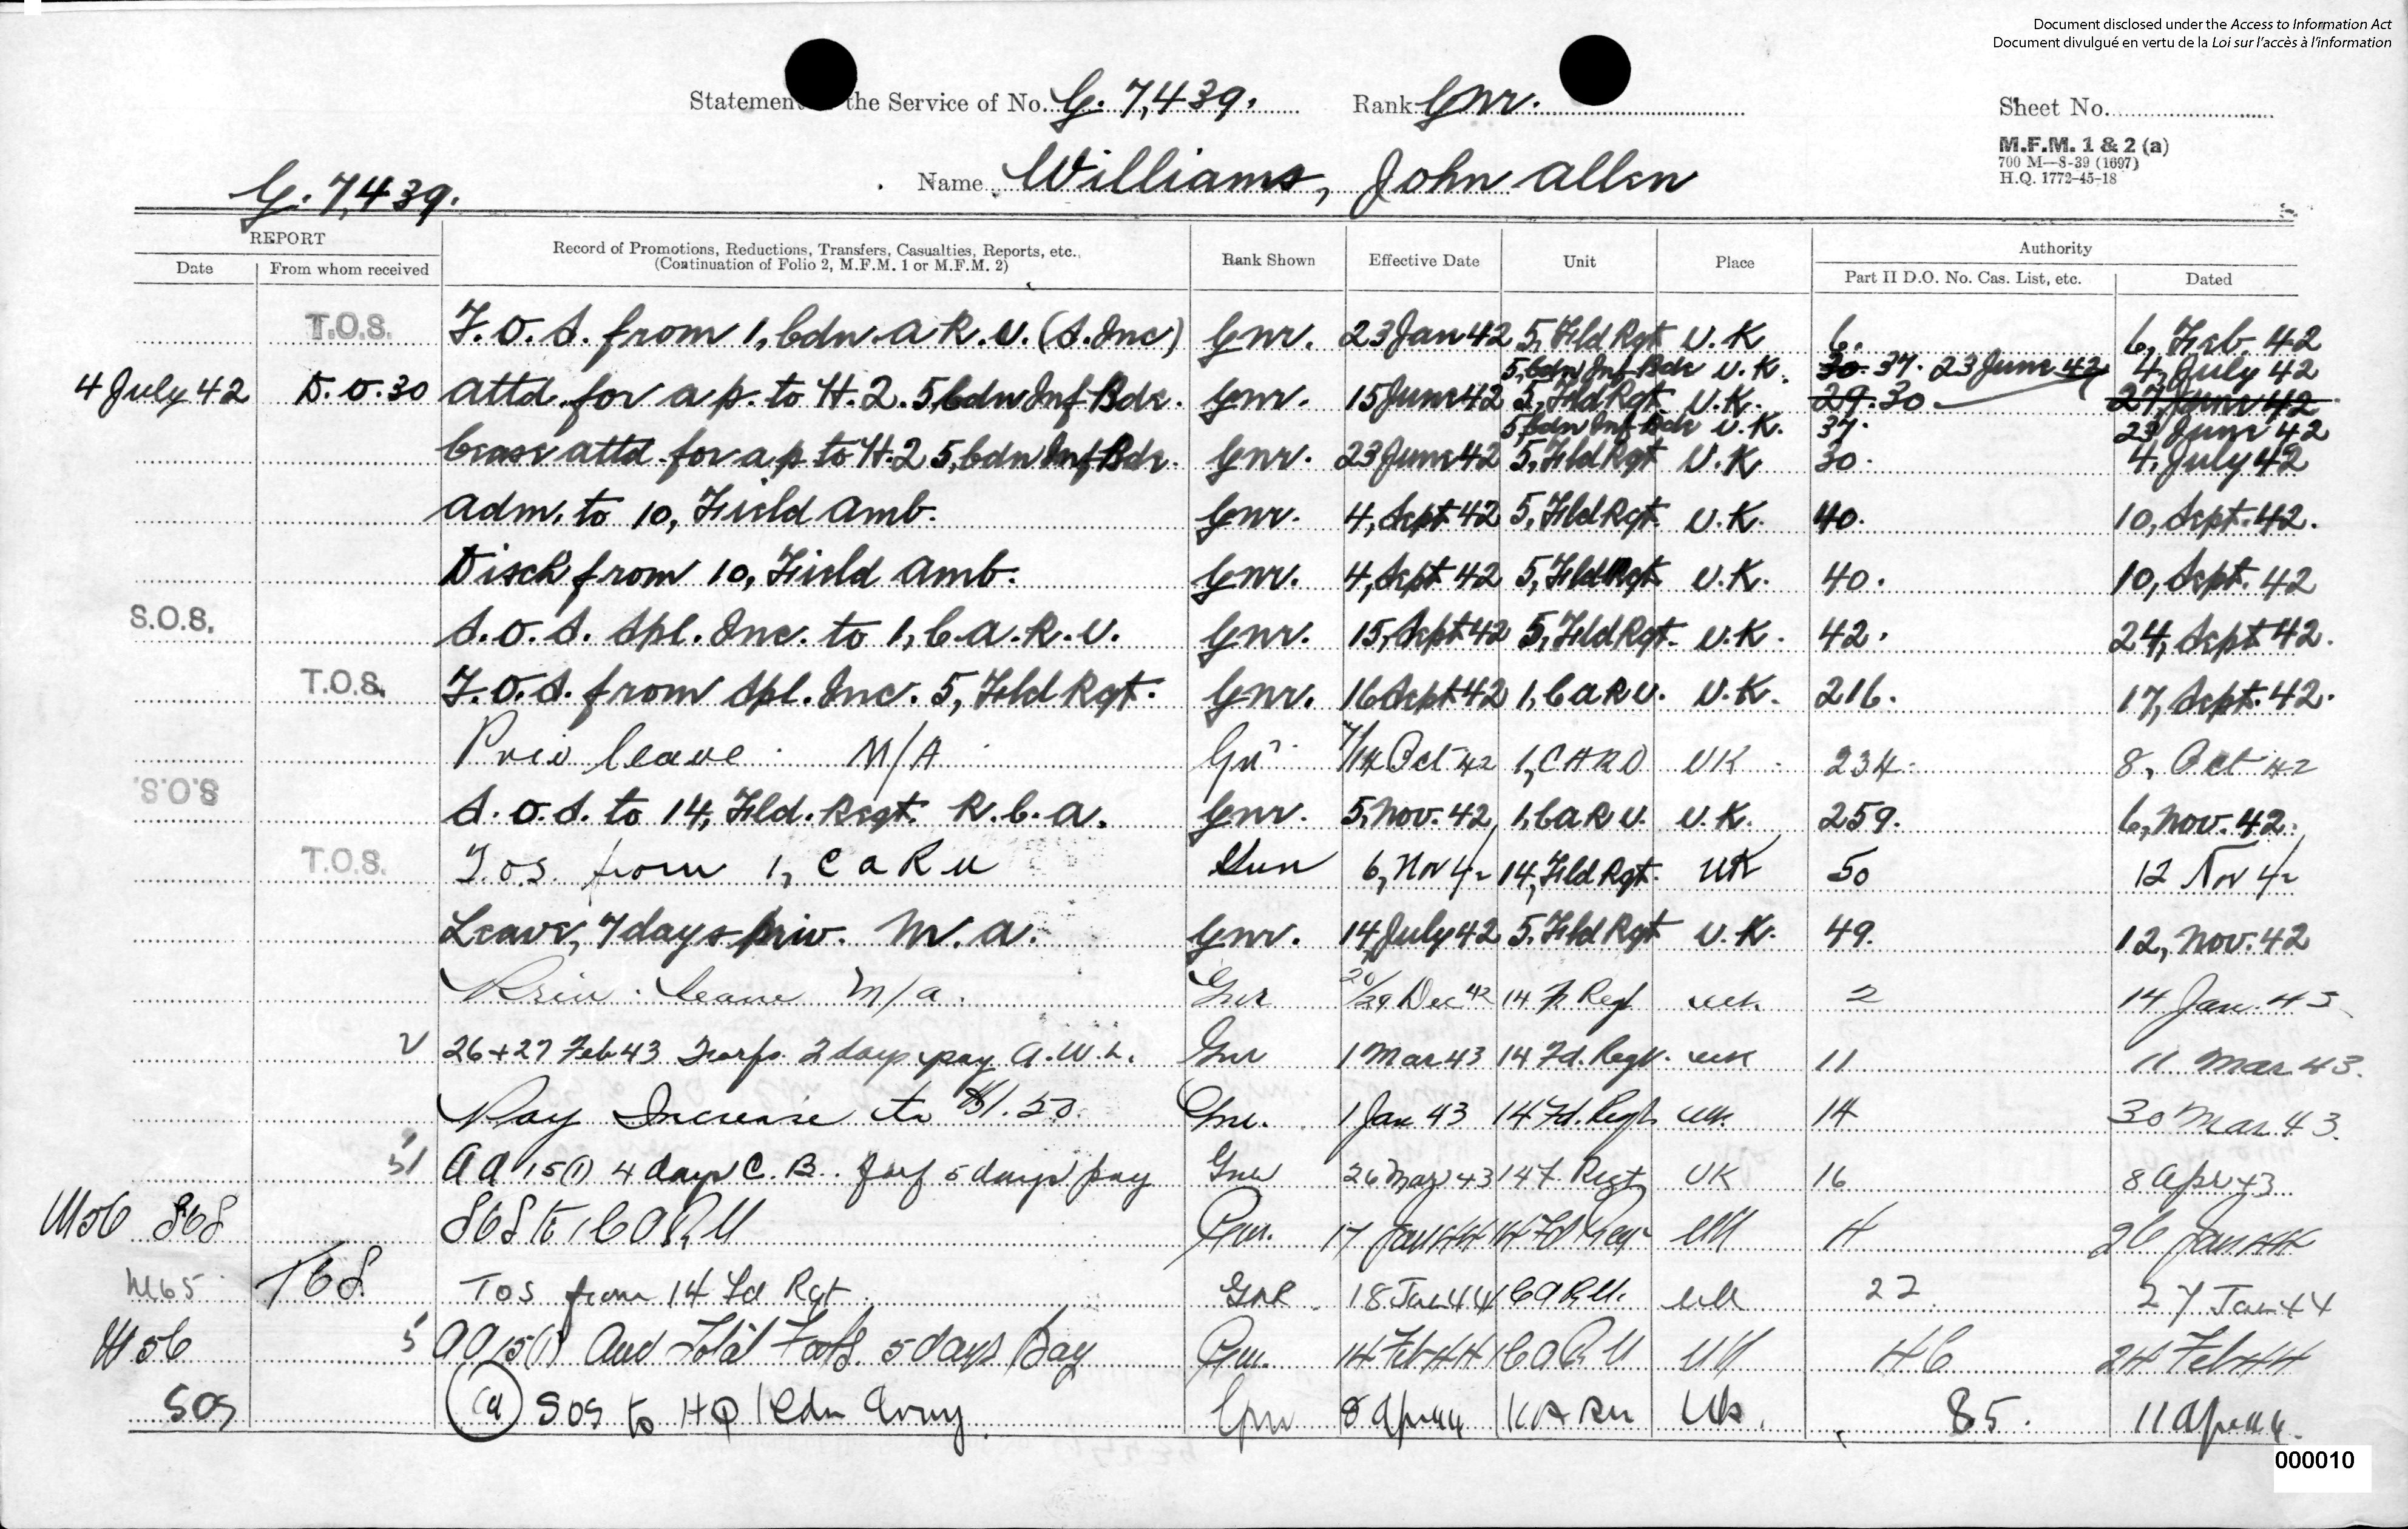 Document disclosed under the Access to Information Act
Document divulgué en vertu de la Loi sur l'accès à l'information
Statemen the Service of No. G. 7,439. Rank Gnr. Sheet No.
M.F.M. 1 & 2 (a)
700 M—8-39 (1697)
H.Q. 1772-45-18
Name Williams, John Allen
G. 7,439.
REPORT
Date From whom received
Record of Promotions, Reductions, Transfers, Casualties, Reports, etc.
(Continuation of Folio 2, M.F.M. 1 or M.F.M. 2)
Rank Shown Effective Date Unit Place
Authority
Part II D.O. No. Cas. List, etc. Dated
T.O.S. T.O.S. from 1, Cdn. A.R.U. (S. Inc) Gnr. 23 Jan 42 5, Fld Rgt U.K 6. 6, Feb. 42
5, Cdn Inf Bde U.K. 30. 37. 23 June 42 4, July 42
4 July 42 D.O.30 attd. for a.p. to H.Q. 5 Cdn Inf Bde. Gnr. 15 June 42 5, Fld Rgt. U.K. 29. 30 27, June 42
5 Cdn Inf Bde U.K. 37. 23 June 42
Cease attd. for a.p. to H.Q 5, Cdn Inf Bde. Gnr. 23 June 42 5, Fld Rgt U.K 30. 4, July 42
Adm. to 10, Field Amb. Gnr. 4, Sept 42 5, Fld Rgt. U.K. 40. 10, Sept. 42.
Disch from 10, Field Amb. Gnr. 4, Sept 42 5, Fld Rgt. U.K. 40. 10, Sept. 42
S.O.S. S.O.S. Spl. Inc. to 1, C.A.R.U. Gnr. 15, Sept 42 5, Fld Rgt. U.K. 42. 24, Sept 42.
T.O.S. T.O.S. from Spl. Inc. 5, Fld Rgt. Gnr. 16 Sept 42 1, C A R U. U.K. 216. 17, Sept. 42.
Priv leave M/A Gnr. 7/14 Oct 42 1, CARU UK 234. 8, Oct 42
S.O.S. S.O.S. to 14, Fld. Regt. R.C.A. Gnr. 5, Nov. 42 1, C A R U. U.K. 259. 6, Nov. 42.
T.O.S. T.O.S. from 1, C A R U Gun 6, Nov 42 14, Fld Rgt. UK 50 12 Nov 42
Leave, 7 days priv. M.A. Gnr. 14 July 42 5. Fld Rgt U.K. 49. 12, Nov. 42
Priv. leave M/A. Gnr 20/29 Dec 42 14 F Regt UK. 2 14 Jan. 43
V 26+27 Feb 43 Forf. 2 days pay A.W.L. Gnr 1 Mar 43 14 Fd. Regt. UK 11 11 Mar 43.
Pay Increase to $1.50 Gnr. 1 Jan 43 14 Fd. Regt. UK. 14 30 Mar 43.
AA 15(1) 4 days C.B. forf 5 days pay Gnr 26 Mar 43 14 F. Regt UK 16 8 Apr 43
M56 SOS SOS to 1 CARU Gnr. 17 Jan 44 14 Fd Reg UK 4 26 Jan 44
M65 TOS TOS from 14 Fd Rgt. GNR. 18 Jan 44 1 CARU. UK 22 27 Jan 44
M 56 5 AA 15(1) Awd Total Forf. 5 days Pay Gnr. 14 Feb 44 1 CARU UK 46 24 Feb 44
SOS (a) SOS to HQ 1 Cdn Army Gnr 8 Apr 44 1 CARU UK. 85. 11 Apr 44.
000010